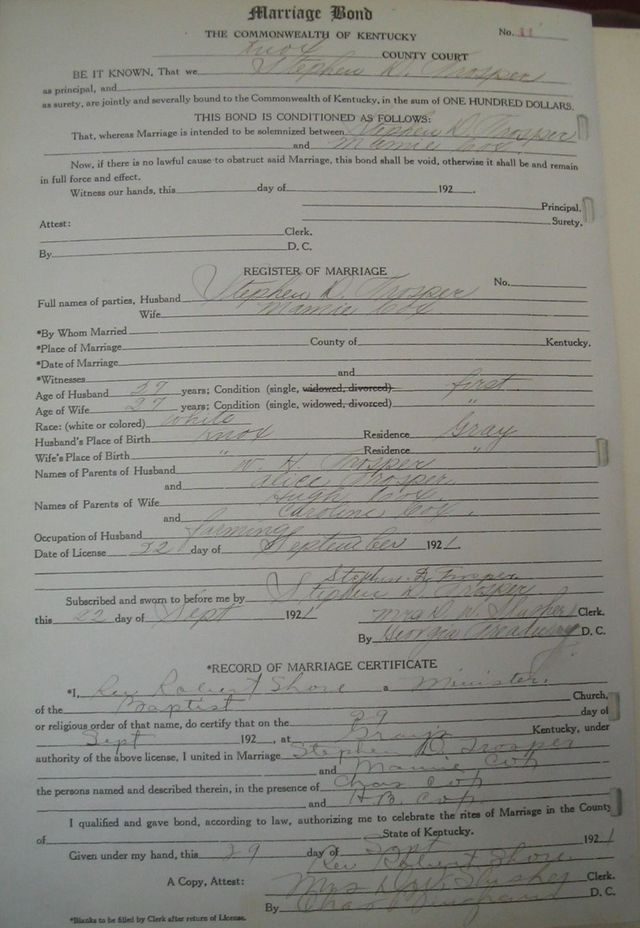 Marriage Bond
THE COMMONWEALTH OF KENTUCKY No. 11
Knox COUNTY COURT
BE IT KNOWN, That we Stephen D. Trosper
as principal, and
as surety, are jointly and severally bound to the Commonwealth of Kentucky, in the sum of ONE HUNDRED DOLLARS.
THIS BOND IS CONDITIONED AS FOLLOWS:
That, whereas Marriage is intended to be solemnized between Stephen D. Trosper
and Mamie Cox
Now, if there is no lawful cause to obstruct said Marriage, this bond shall be void, otherwise it shall be and remain
in full force and effect.
Witness our hands, this day of 192 .
Principal.
Surety.
Attest: Clerk.
By D. C.
REGISTER OF MARRIAGE
No.
Full names of parties, Husband Stephen D. Trosper
Wife Mamie Cox
*By Whom Married
*Place of Marriage County of Kentucky.
*Date of Marriage
*Witnesses and
Age of Husband 27 years; Condition (single, widowed, divorced) first
Age of Wife 27 years; Condition (single, widowed, divorced) "
Race: (white or colored) White
Husband's Place of Birth Knox Residence Gray
Wife's Place of Birth " Residence "
Names of Parents of Husband W. H. Trosper
and Alice Trosper
Names of Parents of Wife Hugh Cox
and Caroline Cox.
Occupation of Husband farming
Date of License 22 day of September 1921.
Stephen D. Trosper
Subscribed and sworn to before me by Stephen D. Trosper
this 22 day of Sept 1921 Mrs D. W. Clerk.
By Georgia D. C.
*RECORD OF MARRIAGE CERTIFICATE
*I, Rev Robert Shore a Minister.
of the Baptist Church,
or religious order of that name, do certify that on the 29 day of
Sept 192 , at Grays Kentucky, under
authority of the above license, I united in Marriage Stephen D. Trosper
and Mamie Cox
the persons named and described therein, in the presence of Chas Cox
and H.B. Cox
I qualified and gave bond, according to law, authorizing me to celebrate the rites of Marriage in the County
of State of Kentucky.
Given under my hand, this 29 day of Sept 1921
Rev Robert Shore
A Copy, Attest: Mrs Clerk.
By Chas D. C.
*Blanks to be filled by Clerk after return of License.